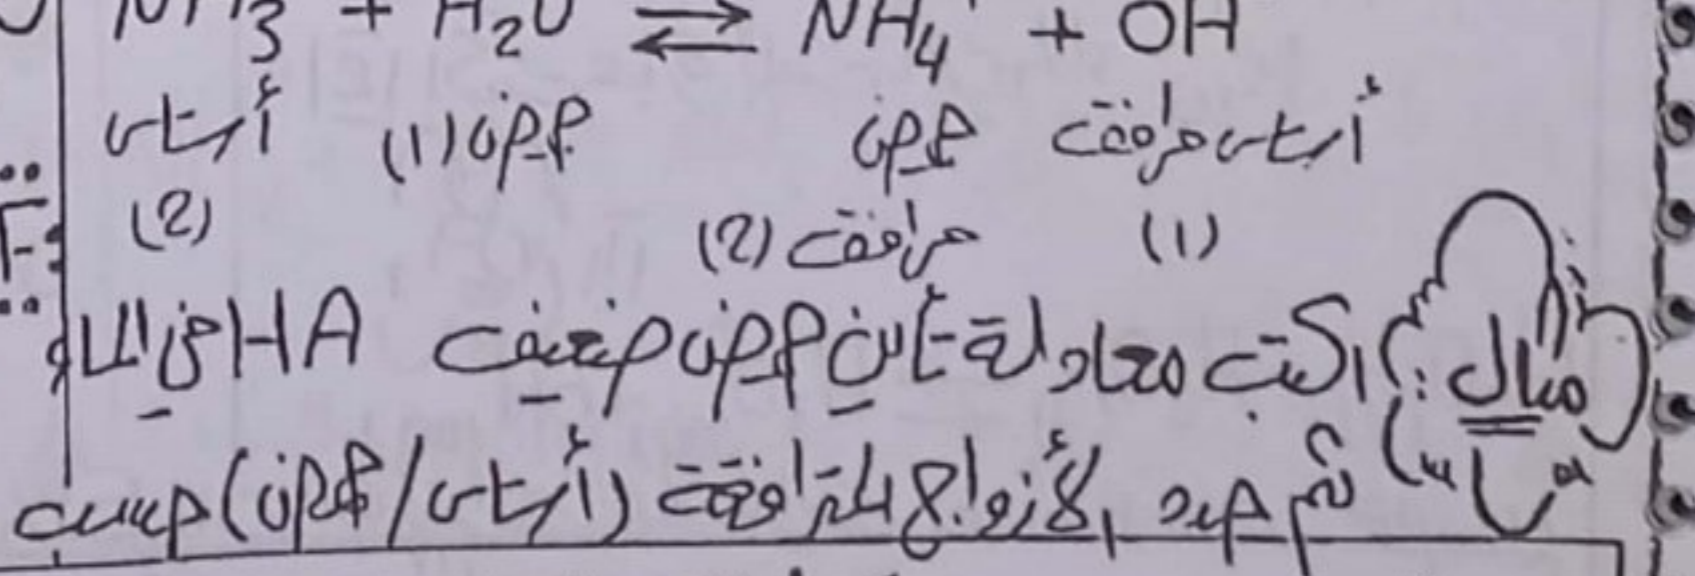 NH3 + H2O ⇌ NH4+ + OH
أساس حمض (1) حمض أساس مرافق
(2) مرافق (2) (1)
مثال: اكتب معادلة تأين حمض ضعيف HA في الماء
ثم حدد الأزواج المترافقة (أساس/حمض) حسب